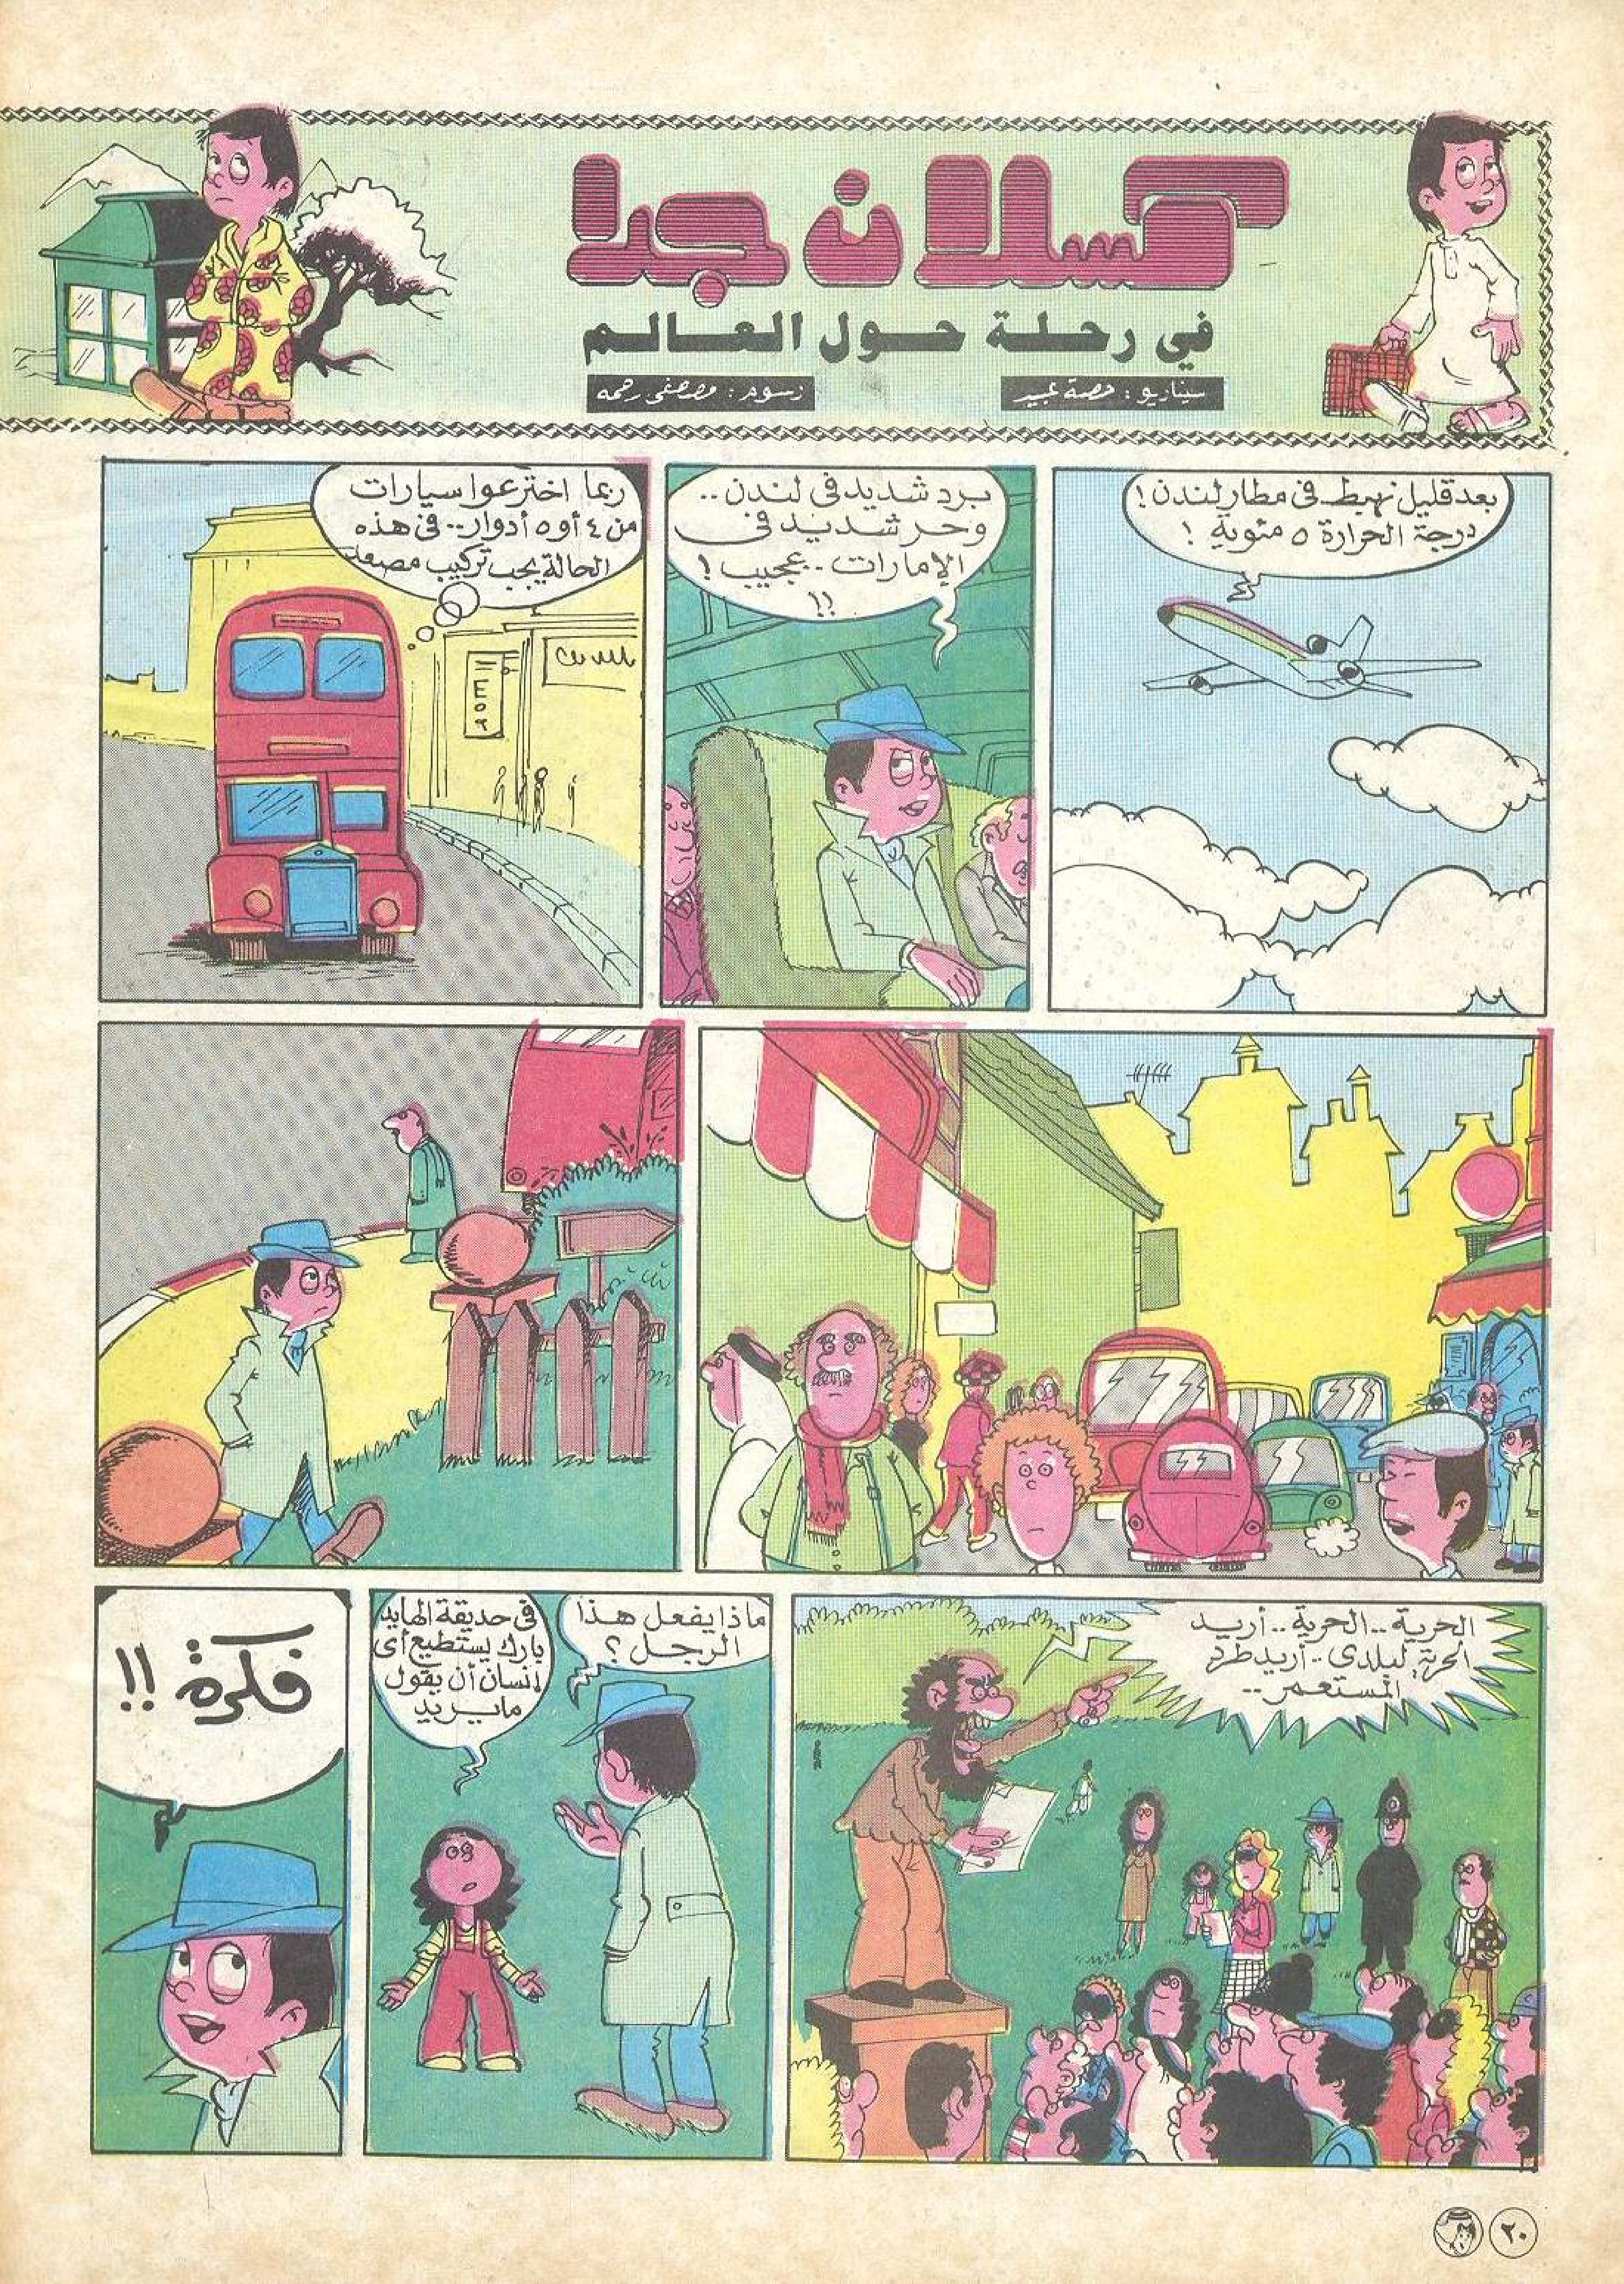 كسلان جدا
في رحلة حول العالم
سيناريو : حصة
رسوم : مصطفى رحمه
بعد قليل نهبط فى مطار لندن !
درجة الحرارة ٥ مئوية !
برد شديد فى لندن ..
وحر شديد فى
الإمارات .. عجيب !
!!
ربما اخترعوا سيارات
من ٤ أو ٥ أدوار .. فى هذه
الحالة يجب تركيب مصعد
الحرية .. الحرية .. أريد
الحرية لبلدى .. أريد طرد
المستعمر ..
ماذا يفعل هذا
الرجل ؟
فى حديقة الهايد
بارك يستطيع أى
إنسان أن يقول
مايريد
فكرة !!
٢٠